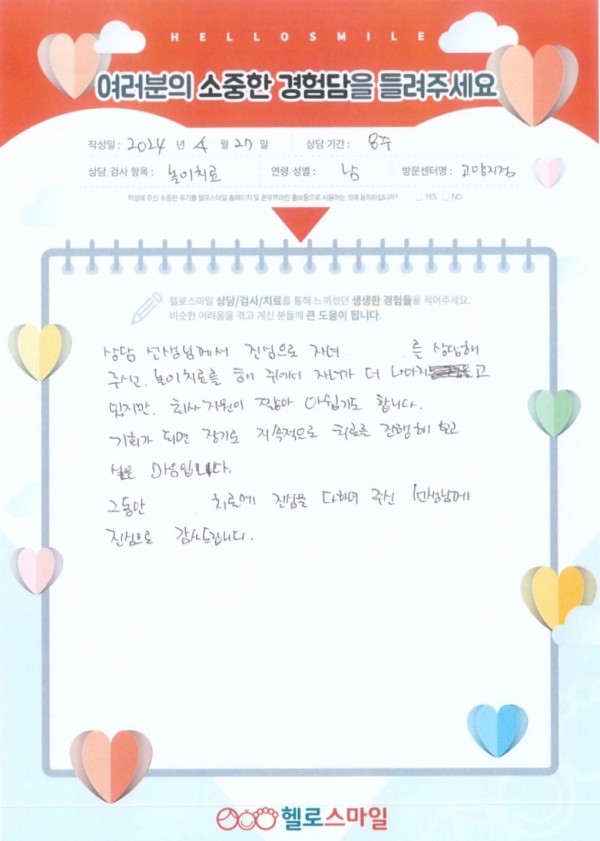 HELLOSMILE
여러분의 소중한 경험담을 들려주세요
작성일 : 2024 년 4 월 27 일 상담 기간 : 8주
상담 검사 항목 : 놀이치료 연령 성별 : 남 방문센터명 : 고양지점
작성해 주신 소중한 후기를 헬로스마일 홈페이지 및 온오프라인 홍보용으로 사용하는 것에 동의하십니까? □ YES □ NO
헬로스마일 상담/검사/치료를 통해 느끼셨던 생생한 경험들을 적어주세요.
비슷한 어려움을 겪고 계신 분들께 큰 도움이 됩니다.
상담 선생님께서 진심으로 자녀 를 상담해
주신, 놀이치료를 해 주셔서 자녀가 더 나아지고
있지만, 회사 지원이 짧아 아쉽기도 합니다.
기회가 되면 장기로 지속적으로 치료를 진행해 보고
싶은 마음입니다.
그동안 치료에 진심을 다하여 주신 선생님께
진심으로 감사드립니다.
헬로스마일